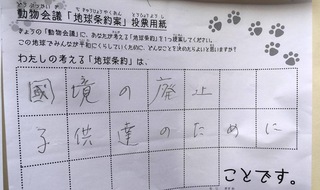 動物会議「地球条約案」投票用紙
きょうの「動物会議」に、あなたが考える「地球条約」を1つ提案してください。
この地球でみんなが平和にくらしていくために、どんなことを決めたらよいと思いますか?
わたしの考える「地球条約」は、
國境の廃止
子供達のために
ことです。